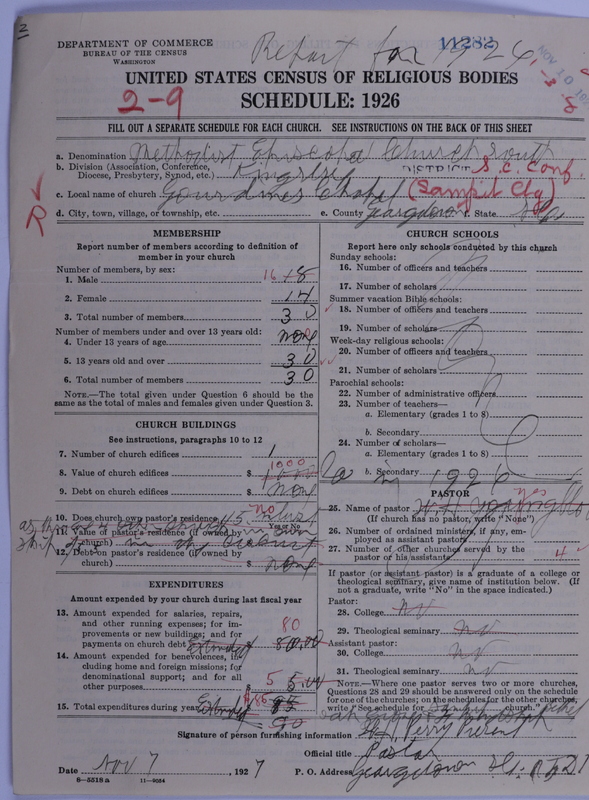 DEPARTMENT OF COMMERCE
BUREAU OF THE CENSUS
WASHINGTON
Report for 1926
11282
NOV 10
UNITED STATES CENSUS OF RELIGIOUS BODIES
2-9
SCHEDULE: 1926
FILL OUT A SEPARATE SCHEDULE FOR EACH CHURCH. SEE INSTRUCTIONS ON THE BACK OF THIS SHEET
a. Denomination Methodist Episcopal Church South
b. Division (Association, Conference, Diocese, Presbytery, Synod, etc.) DISTRICT S.C. Conf.
c. Local name of church (Sampit Chg)
R
d. City, town, village, or township, etc. e. County Georgetown f. State
MEMBERSHIP
Report number of members according to definition of member in your church
Number of members, by sex:
1. Male 16 18
2. Female 14
3. Total number of members 30
Number of members under and over 13 years old:
4. Under 13 years of age none
5. 13 years old and over 30
6. Total number of members 30
NOTE.—The total given under Question 6 should be the same as the total of males and females given under Question 3.
CHURCH BUILDINGS
See instructions, paragraphs 10 to 12
7. Number of church edifices 1
8. Value of church edifices $ 1000
9. Debt on church edifices $ none
10. Does church own pastor's residence? No
Yes or No
11. Value of pastor's residence (if owned by church)
12. Debt on pastor's residence (if owned by church) $ none
EXPENDITURES
Amount expended by your church during last fiscal year
13. Amount expended for salaries, repairs, and other running expenses; for improvements or new buildings; and for payments on church debt 80
14. Amount expended for benevolences, including home and foreign missions; for denominational support; and for all other purposes $ 5
15. Total expenditures during year $ 85
CHURCH SCHOOLS
Report here only schools conducted by this church
Sunday schools:
16. Number of officers and teachers
17. Number of scholars
Summer vacation Bible schools:
18. Number of officers and teachers
19. Number of scholars
Week-day religious schools:
20. Number of officers and teachers
21. Number of scholars
Parochial schools:
22. Number of administrative officers
23. Number of teachers—
a. Elementary (grades 1 to 8)
b. Secondary
24. Number of scholars—
a. Elementary (grades 1 to 8)
b. Secondary
in 1926
PASTOR
yes
25. Name of pastor
(If church has no pastor, write "None")
26. Number of ordained ministers, if any, employed as assistant pastors
27. Number of other churches served by the pastor or his assistants 4
If pastor (or assistant pastor) is a graduate of a college or theological seminary, give name of institution below. (If not a graduate, write "No" in the space indicated.)
Pastor:
28. College no
29. Theological seminary no
Assistant pastor:
30. College no
31. Theological seminary no
NOTE.—Where one pastor serves two or more churches, Questions 28 and 29 should be answered only on the schedule for one of the churches; on the schedules for the other churches, write "See schedule for Sampit church."
Signature of person furnishing information
Official title Pastor
Date Nov 7, 1927
P. O. Address Georgetown
8-5518a 11-9054